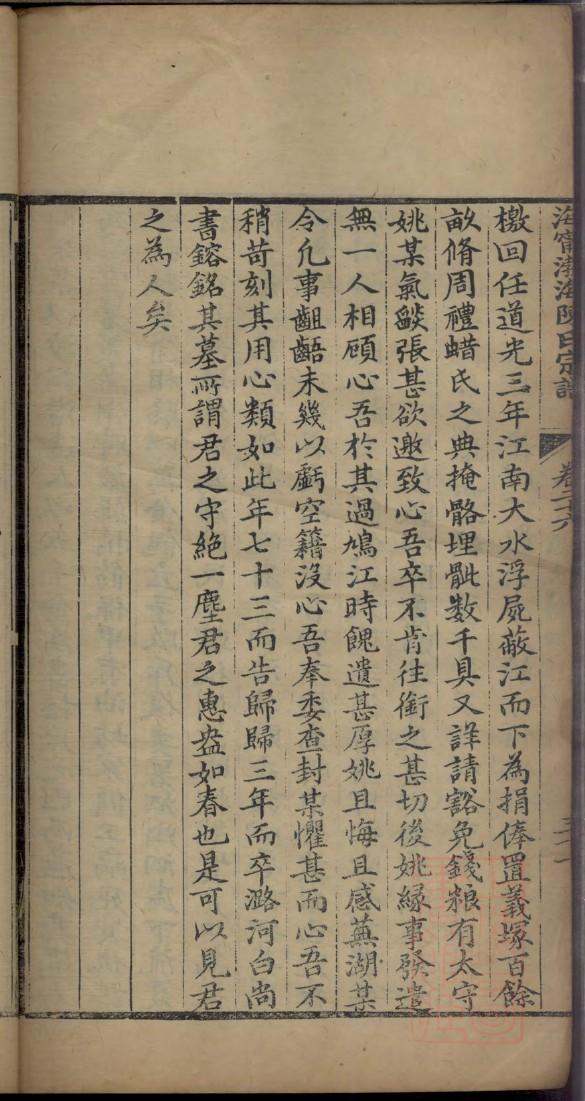 海寧渤海陳氏宗譜
卷二十六
檄回任道光三年江南大水浮屍蔽江而下為捐俸置義塚百餘
畝脩周禮蜡氏之典掩骼埋骴数千具又詳請豁免錢粮有太守
姚某氣燄張甚欲邀致心吾卒不肯往銜之甚切後姚緣事發遣
無一人相顧心吾於其過鳩江時餽遺甚厚姚且悔且感蕪湖某
令凢事齟齬未幾以虧空籍沒心吾奉委查封某懼甚而心吾不
稍苛刻其用心類如此年七十三而告歸歸三年而卒潞河白尚
書鎔銘其墓所謂君之守絶一塵君之惠盎如春也是可以見君
之為人矣